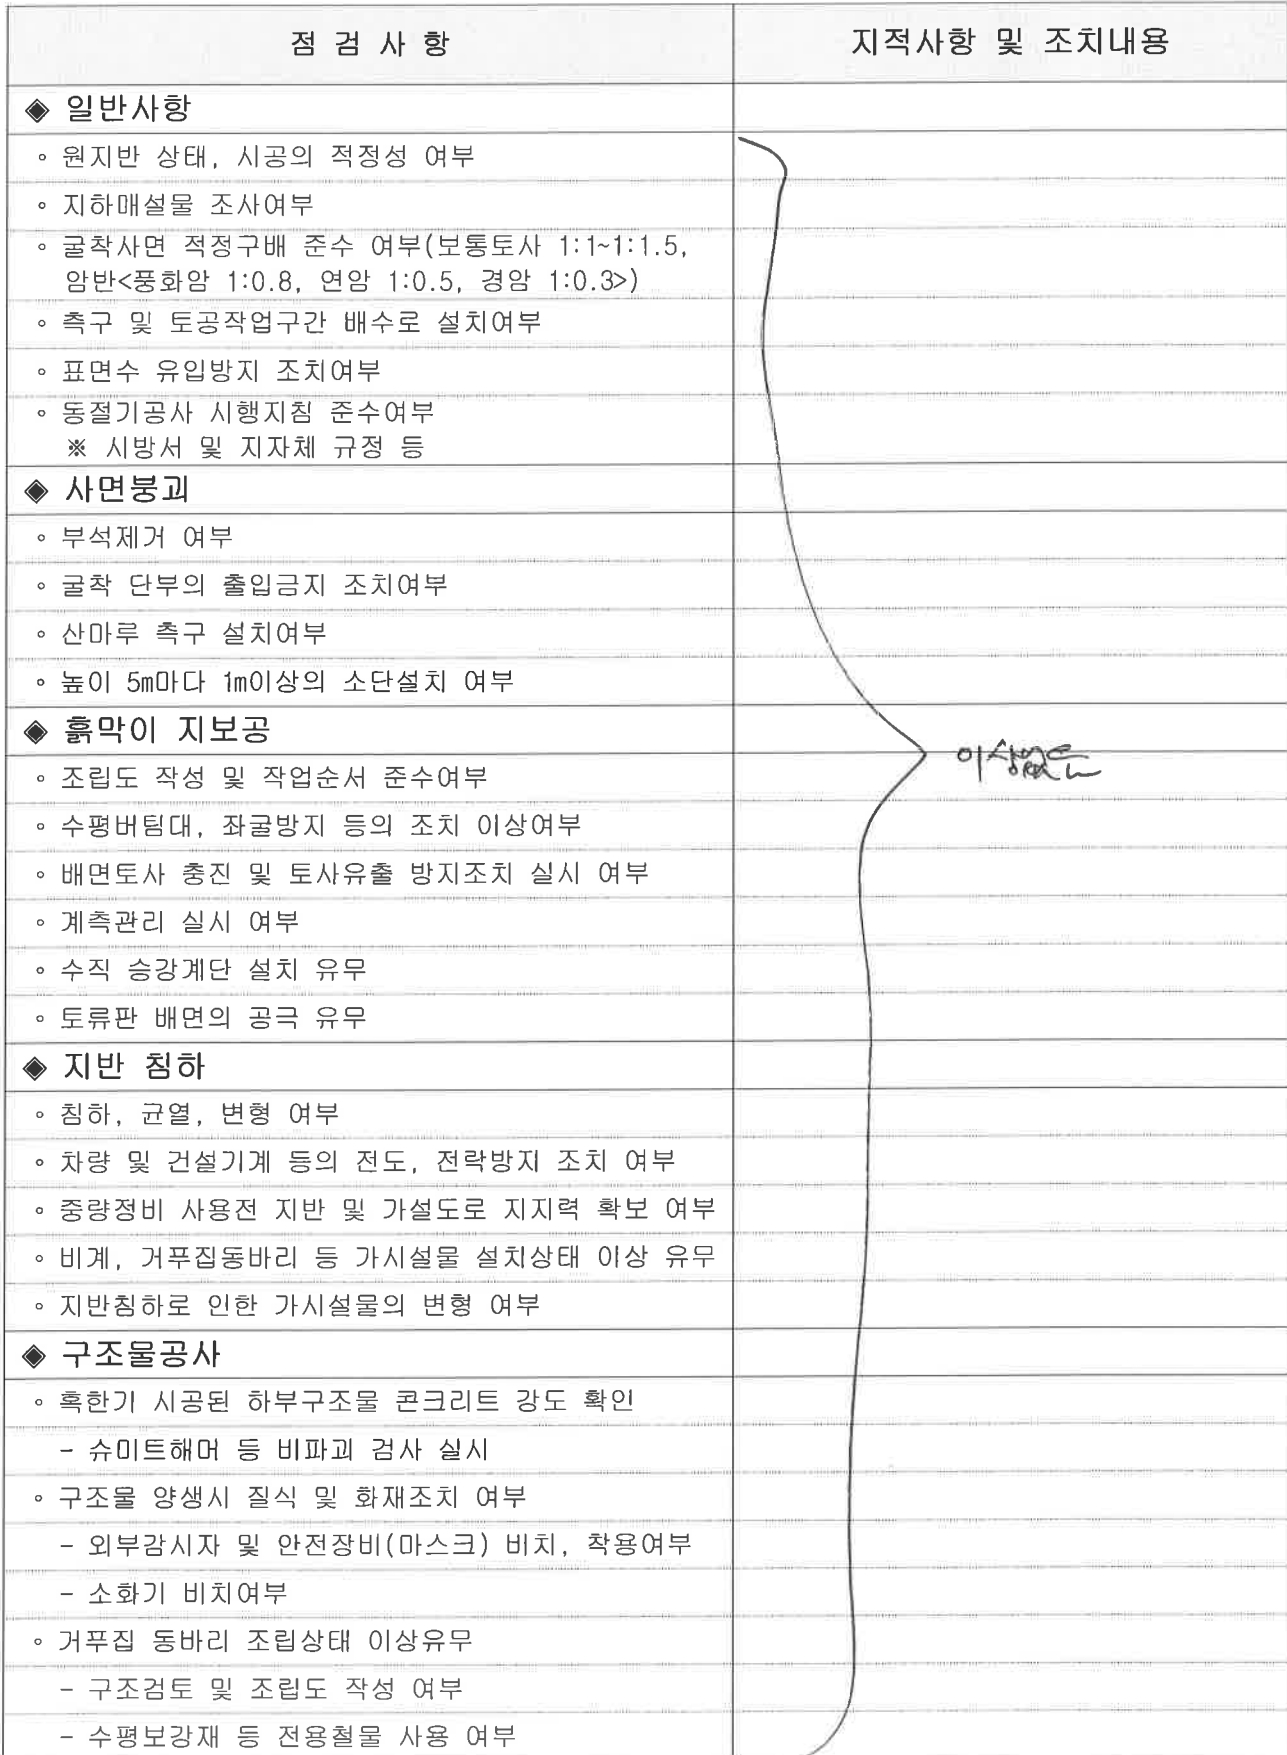 점 검 사 항
지적사항 및 조치내용
◈ 일반사항
◦ 원지반 상태, 시공의 적정성 여부
◦ 지하매설물 조사여부
◦ 굴착사면 적정구배 준수 여부(보통토사 1:1~1:1.5,
암반<풍화암 1:0.8, 연암 1:0.5, 경암 1:0.3>)
◦ 측구 및 토공작업구간 배수로 설치여부
◦ 표면수 유입방지 조치여부
◦ 동절기공사 시행지침 준수여부
※ 시방서 및 지자체 규정 등
◈ 사면붕괴
◦ 부석제거 여부
◦ 굴착 단부의 출입금지 조치여부
◦ 산마루 측구 설치여부
◦ 높이 5m마다 1m이상의 소단설치 여부
◈ 흙막이 지보공
이상없음
◦ 조립도 작성 및 작업순서 준수여부
◦ 수평버팀대, 좌굴방지 등의 조치 이상여부
◦ 배면토사 충진 및 토사유출 방지조치 실시 여부
◦ 계측관리 실시 여부
◦ 수직 승강계단 설치 유무
◦ 토류판 배면의 공극 유무
◈ 지반 침하
◦ 침하, 균열, 변형 여부
◦ 차량 및 건설기계 등의 전도, 전락방지 조치 여부
◦ 중량정비 사용전 지반 및 가설도로 지지력 확보 여부
◦ 비계, 거푸집동바리 등 가시설물 설치상태 이상 유무
◦ 지반침하로 인한 가시설물의 변형 여부
◈ 구조물공사
◦ 혹한기 시공된 하부구조물 콘크리트 강도 확인
- 슈미트해머 등 비파괴 검사 실시
◦ 구조물 양생시 질식 및 화재조치 여부
- 외부감시자 및 안전장비(마스크) 비치, 착용여부
- 소화기 비치여부
◦ 거푸집 동바리 조립상태 이상유무
- 구조검토 및 조립도 작성 여부
- 수평보강재 등 전용철물 사용 여부